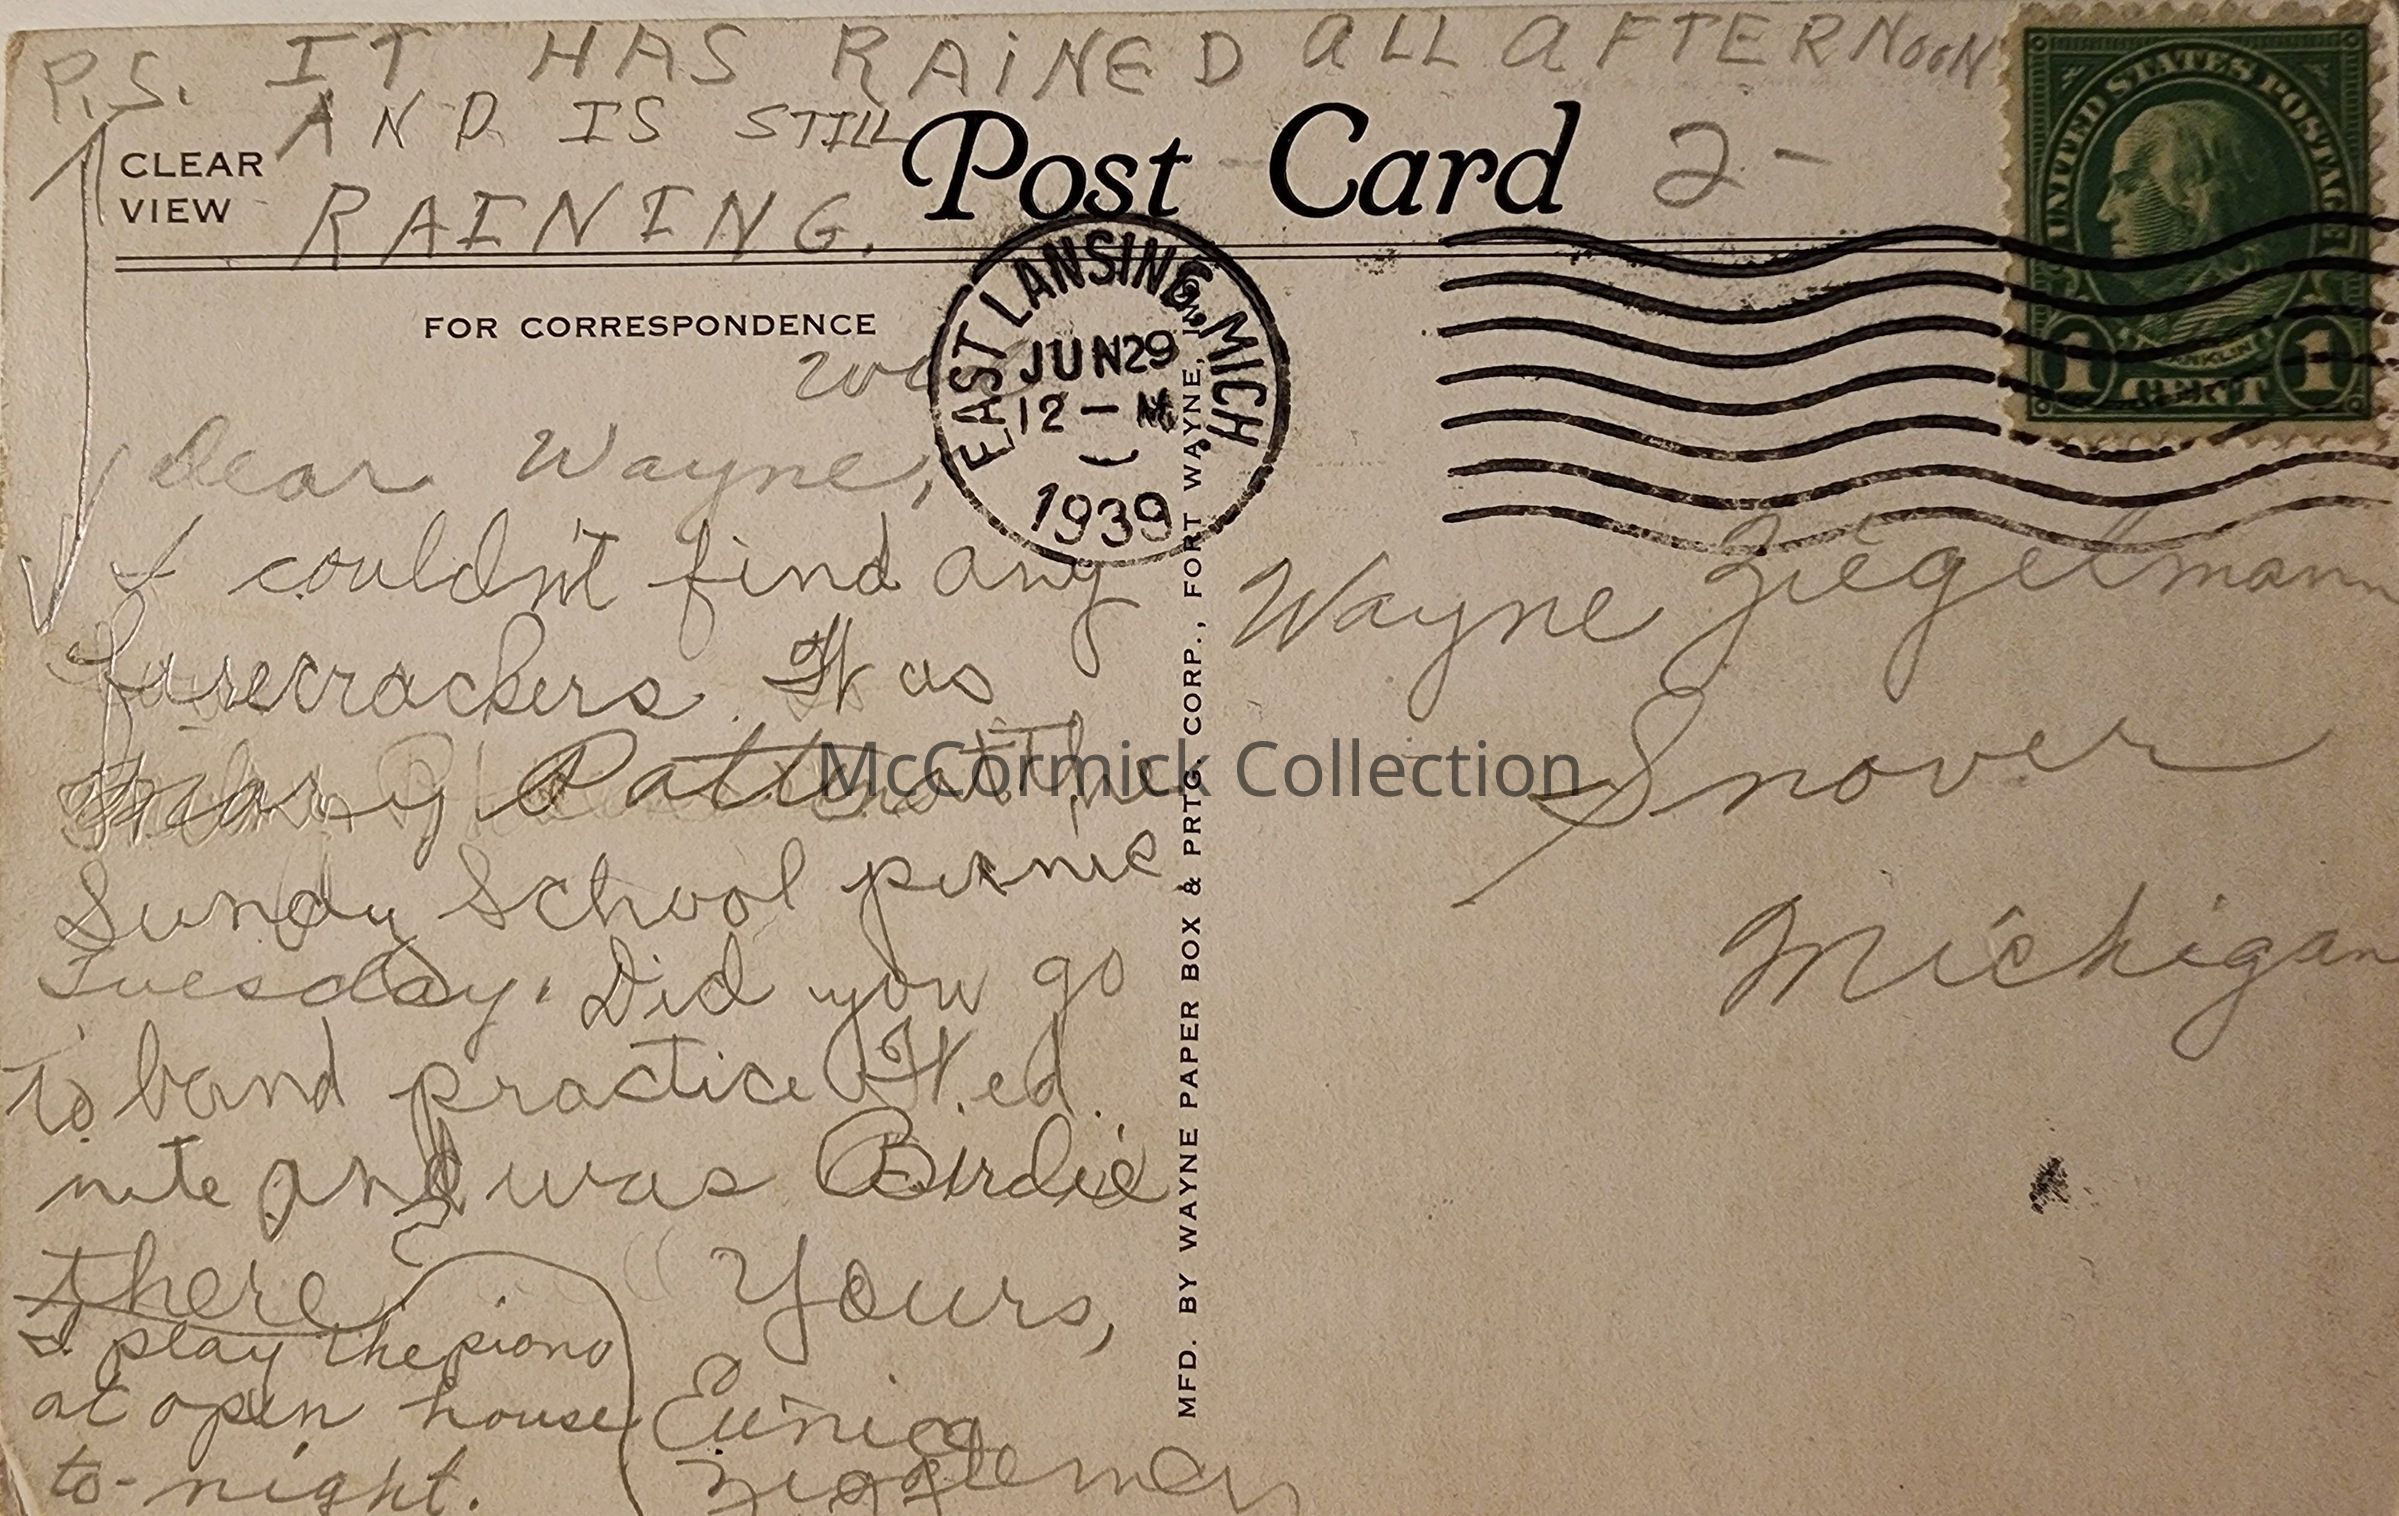 P.S. IT HAS RAINED ALL AFTERNOON
AND IS STILL
RAINING.
CLEAR
VIEW
Post Card
2-
FOR CORRESPONDENCE
EAST LANSING, MICH.
JUN 29
12 - M
1939
UNITED STATES POSTAGE
FRANKLIN
1 CENT 1
Dear Wayne,
I couldn't find any
firecrackers. Was
Mary Patten at the
Sundy School picnic
Tuesday. Did you go
to band practice Wed.
nite and was Birdie
there?
I play the piano
at open house
to-night.
Yours,
Eunice
Ziegleman
Wayne Ziegelmann
Snover
Michigan
MFD. BY WAYNE PAPER BOX & PRTG. CORP., FORT WAYNE, IND.
McCormick Collection